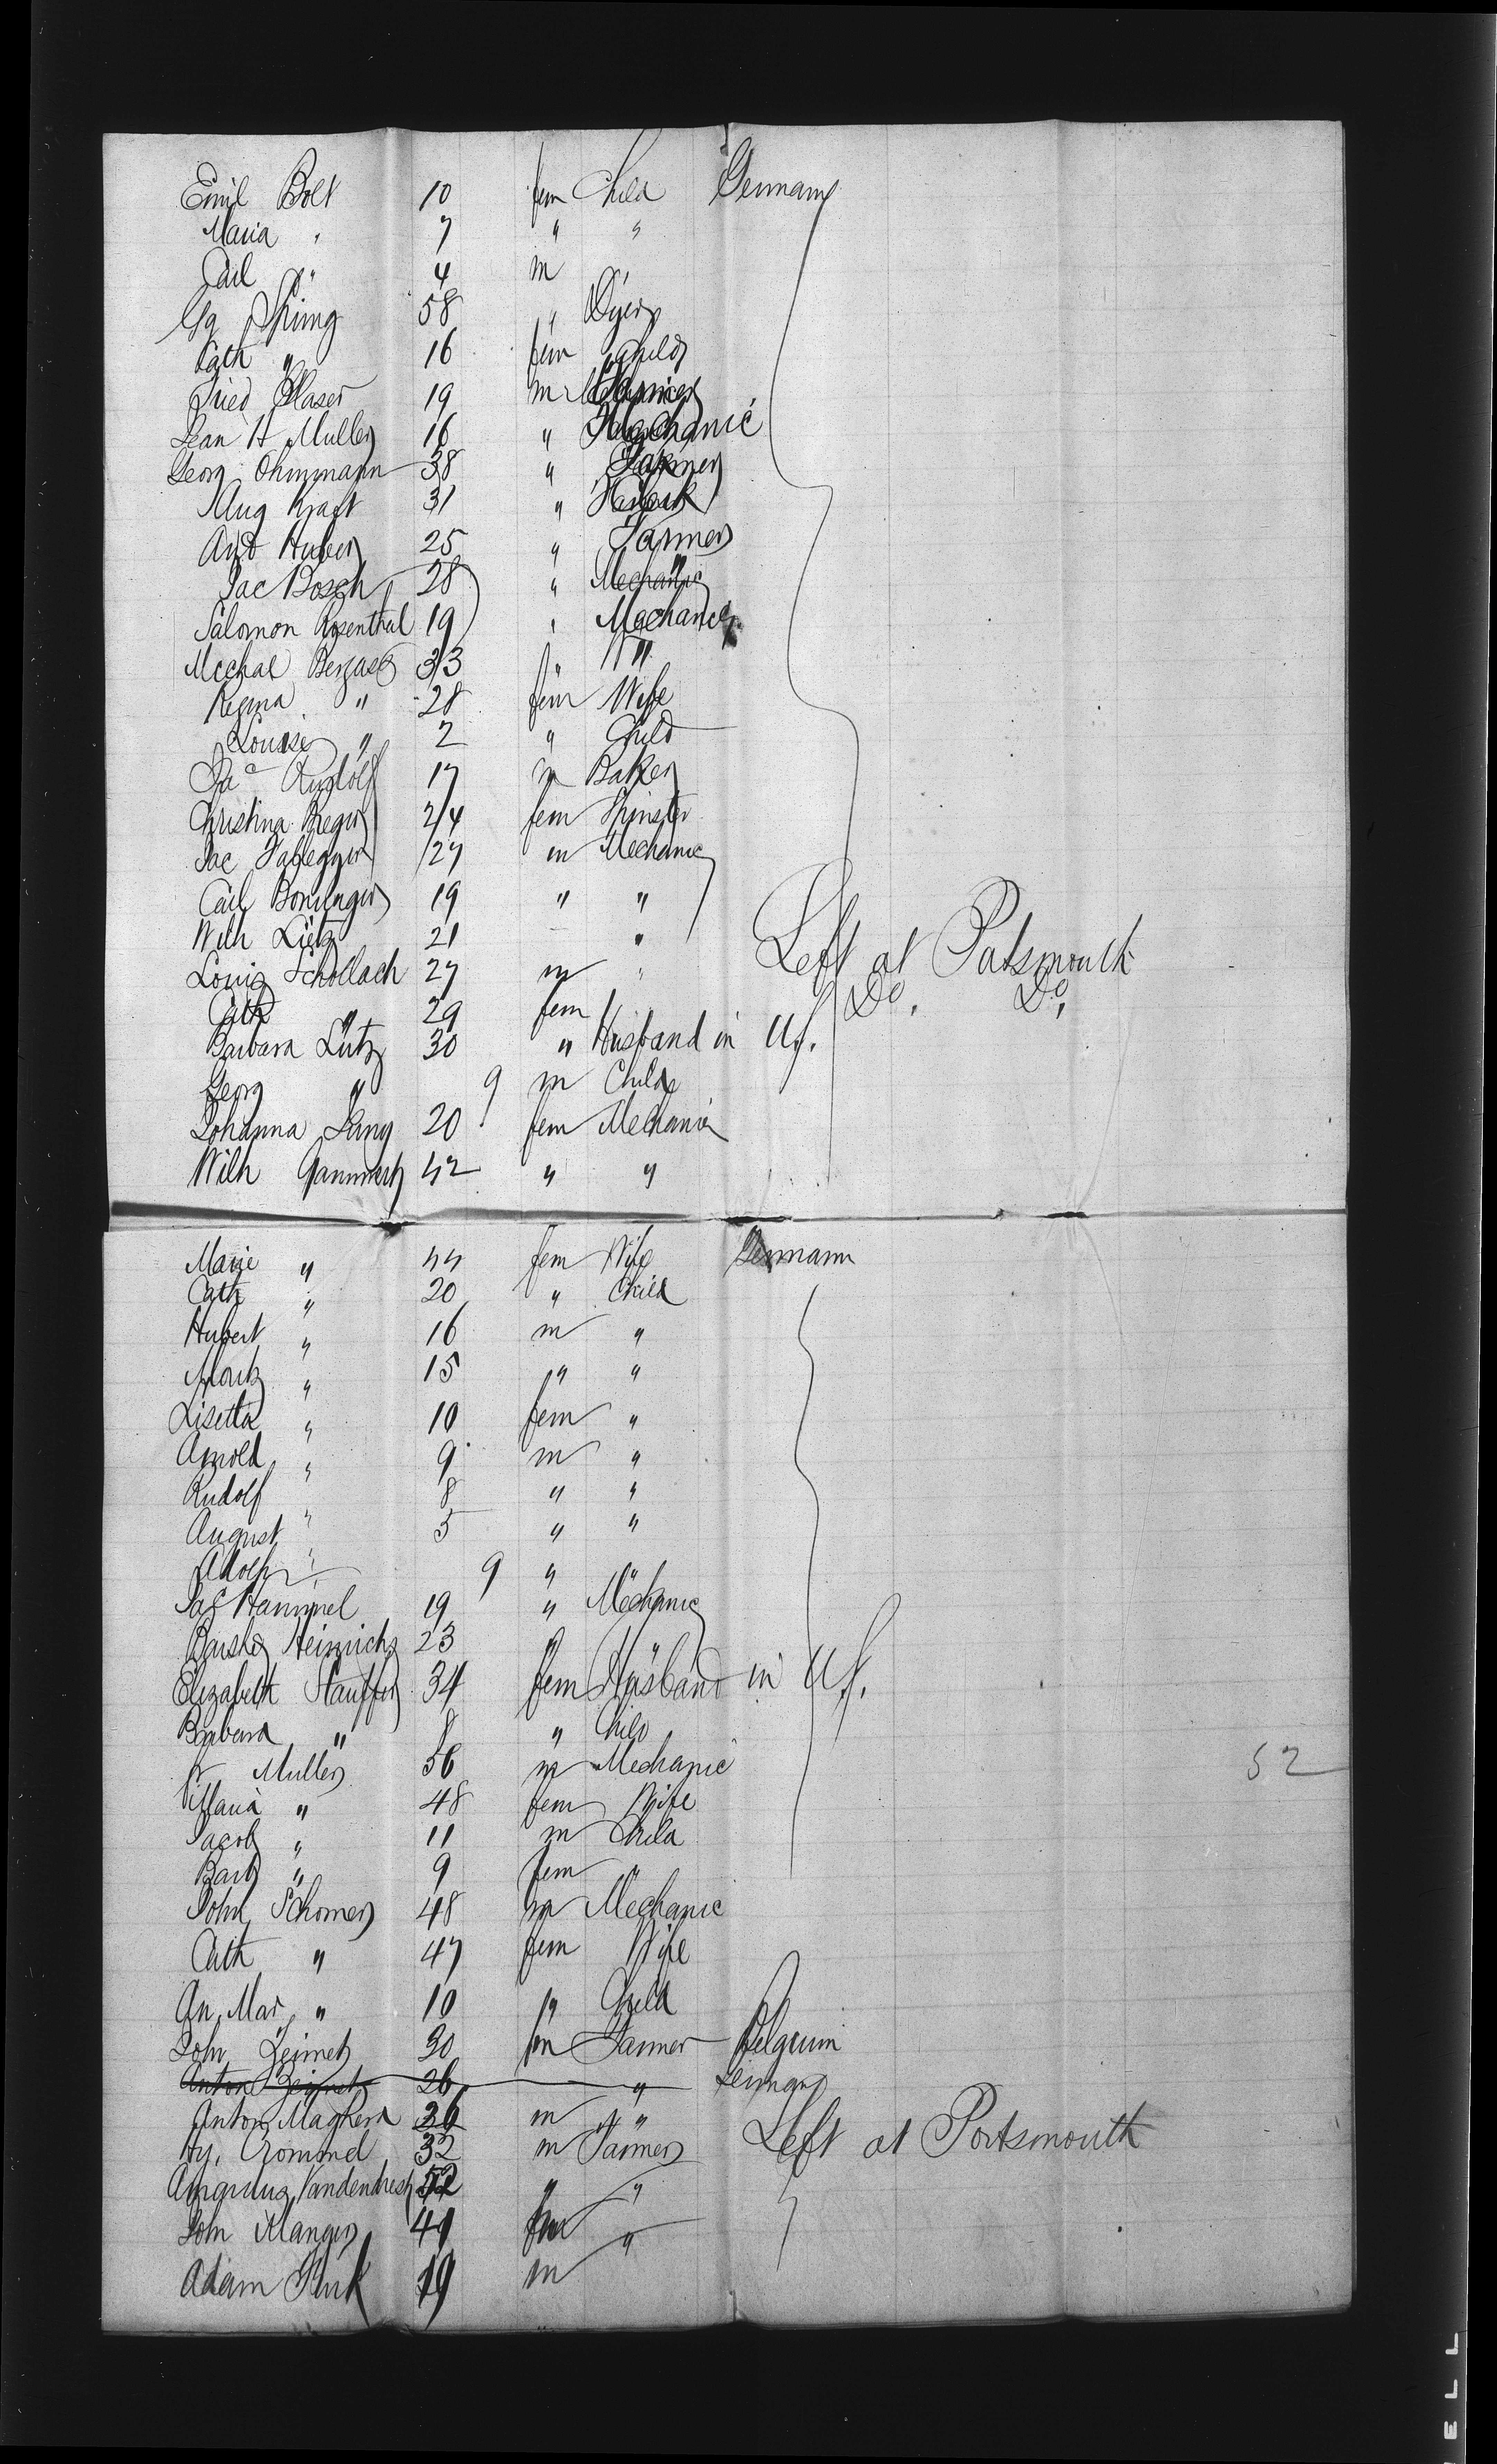 Emil Bolt 10 fem Child Germany
Maria " 7 " "
Carl " 4 m "
Gg Spring 58 " Dyer
Cath " 16 fem Child
Fried Glaser 19 m
Jean H Muller 16 " Mechanic
Georg Ohnymann 38 " Farmer
Aug Kraft 31 "
And Huber 25 " Farmer
Jac Bosch 28 " Mechanic "
Salomon Rosenthal 19 " Mechanic
Mechal 33 " "
Regina " 28 fem Wife
Louise " 2 " Child
Jac Rudolf 17 m Baker
Christina 24 fem Spinster
Jac 27 m Mechanic
Carl 19 " "
Wilh Lutz 21 "
Louis Schollach 27 m " Left at Patsmouth
Cath " 29 fem Do. Do.
Barbara Lutz 30 " Husband in US.
Georg " 9 m Child
Johanna Lang 20 fem Mechanic
Wilh 42 " "
Marie " 44 fem Wife Germann
Cath " 20 " Child
Hubert " 16 m "
Moritz " 15 " "
Lisetta " 10 fem "
Arnold " 9 m "
Rudolf " 8 " "
August " 5 " "
Adolf " 9 " "
Jac Hammel 19 " Mechanic
Heinrichs 23 " "
Elizabeth Stauffer 34 fem Husband in US.
Barbara " 8 " Child
Fr Muller 56 m Mechanic 52
Maria " 48 fem Wife
Jacob " 11 m Child
Barb " 9 fem "
John Schomer 48 m Mechanic
Cath " 47 fem Wife
An. Mar " 10 " Child
John Zeimet 30 m Farmer Belgium
Anton Zeimet 26 " Germany
Anton 36 m "
Hy. Crommel 32 m Farmer Left at Portsmouth
52 " "
John Manger 49 "
Adam 19 m